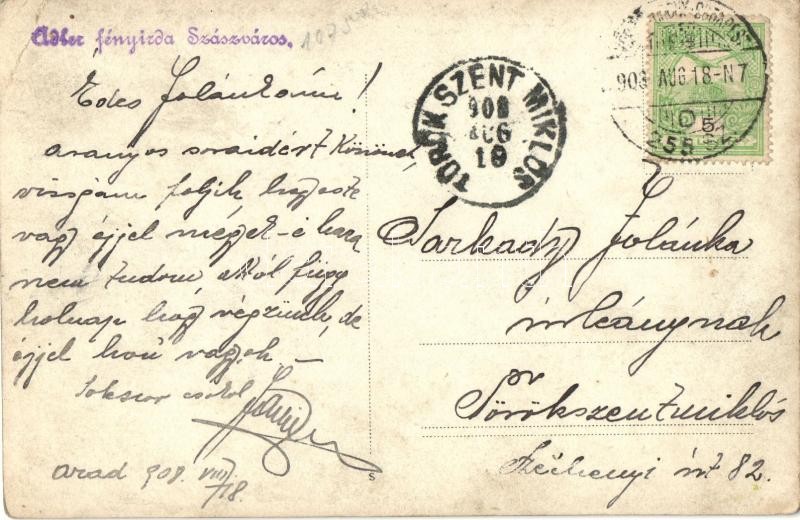 Adler fényirda Szászváros.
Édes Jolánkám!
aranyos soraidért
vizsgám folyik, hogy este
vagy éjjel megyek-e haza
nem tudom attól függ
holnap hogy végzünk, de
éjjel hon vagyok –
Sokszor csókol
Arad 908. VIII/18.
TÖRÖK SZENT MIKLÓS
908
AUG
19
908 AUG 18-N7
5
Sarkady Jolánka
úrleánynak
Törökszentmiklós
Széchenyi út 82.
S